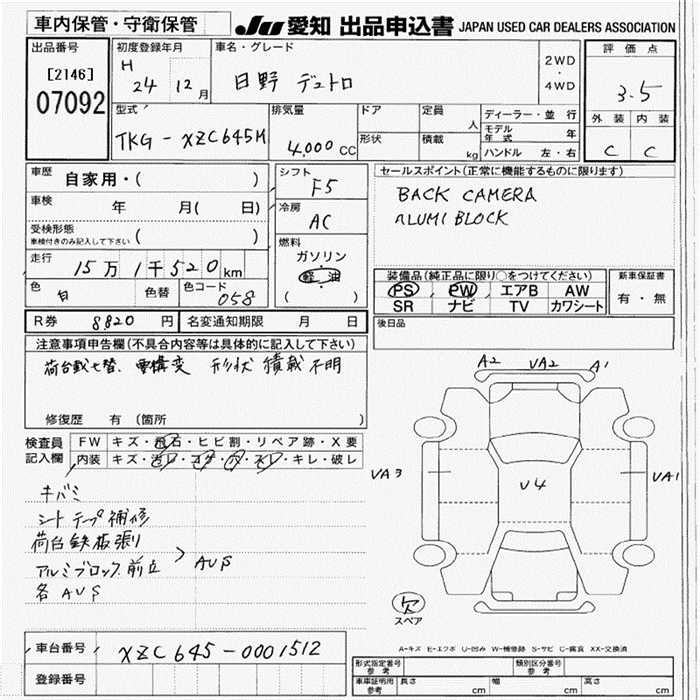 車内保管・守衛保管 JU 愛知 出品申込書 JAPAN USED CAR DEALERS ASSOCIATION
出品番号 [2146] 07092
初度登録年月 H 24 12月
車名・グレード 日野 デュトロ
2WD・4WD
評価点 3.5
外装 C 内装 C
型式 TKG-XZC645M
排気量 4,000cc
ドア
形状
定員 人
積載 kg
ディーラー・並行
モデル年式 年
ハンドル 左・右
車歴 自家用・( )
車検 年 月(日)
受検形態 車検付きのみ記入して下さい ( )
走行 15万1千520km
色 白 色替 色コード 058
シフト F5
冷房 AC
燃料 ガソリン 軽油 ( )
セールスポイント(正常に機能するものに限ります)
BACK CAMERA
ALUMI BLOCK
装備品(純正品に限り○をつけてください)
PS PW エアB AW
SR ナビ TV カワシート
新車保証書 有・無
R券 8820円 名変通知期限 月 日
後日品
注意事項申告欄(不具合内容等は具体的に記入して下さい)
形状 積載 不明
修復歴 有(箇所 )
検査員記入欄
FW キズ・飛石・ヒビ割・リペア跡・X要
内装 キズ・汚レ・コゲ・穴・スレ・キレ・破レ
キバミ
シートテープ補修
荷台鉄板張り
アルミブロック前立 > AUS
各AUS
A2 VA2 A1
VA3 U4 VA1
欠 スペア
A-キズ E-エクボ U-凹み W-補修跡 S-サビ C-腐食 XX-交換済
車台番号 XZC645-0001512
登録番号
形式指定番号 参考 類別区分番号 参考
車車証明用 参考 長さ cm 幅 cm 高さ cm